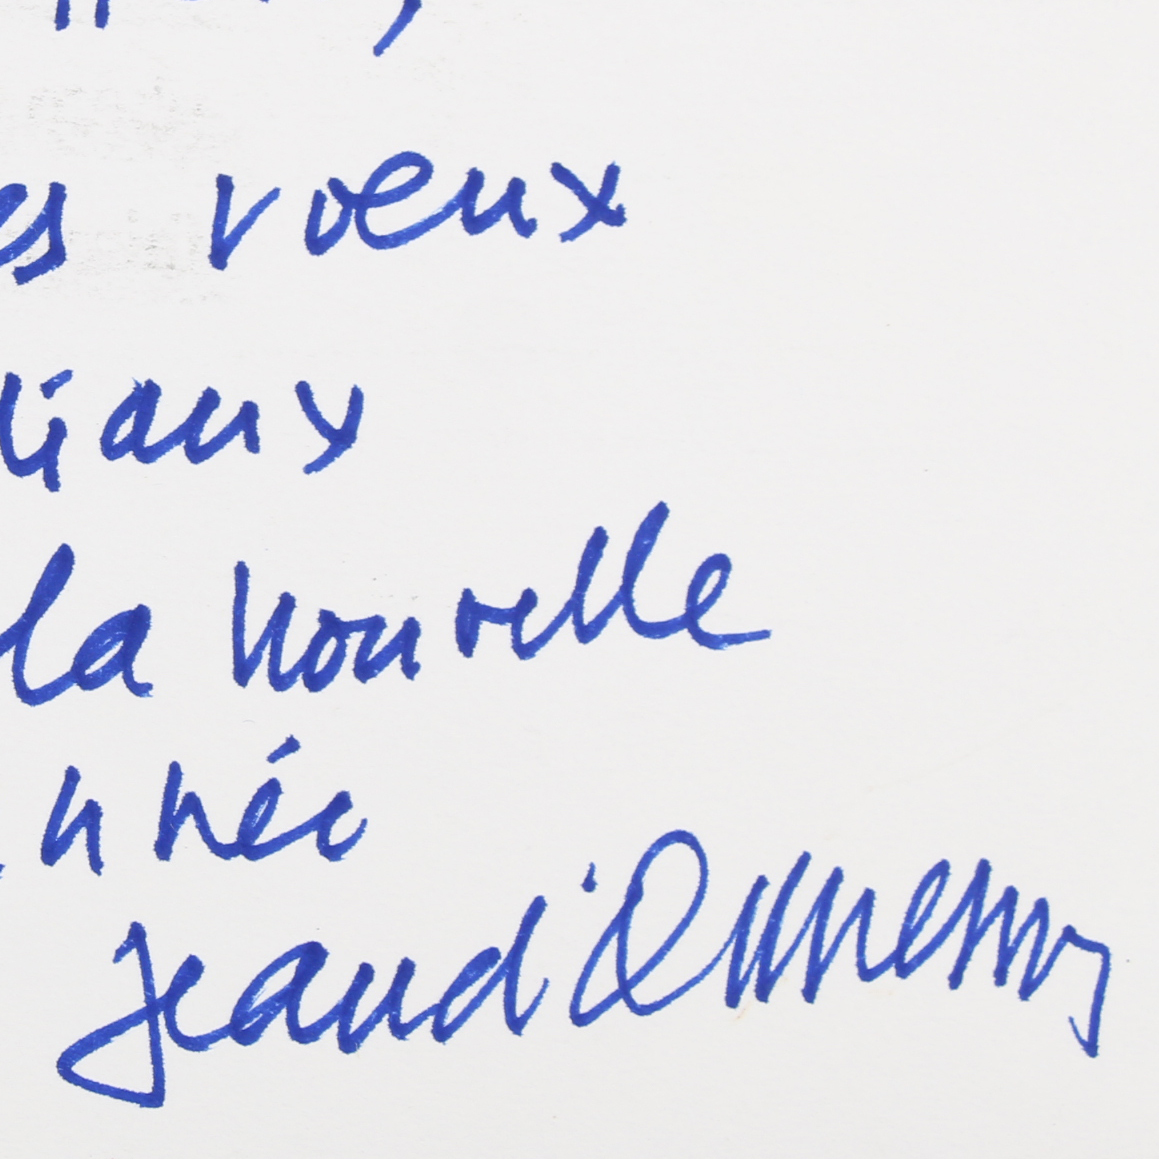 es vœux
diaux
la nouvelle
nnée
Jean d'Ormesson